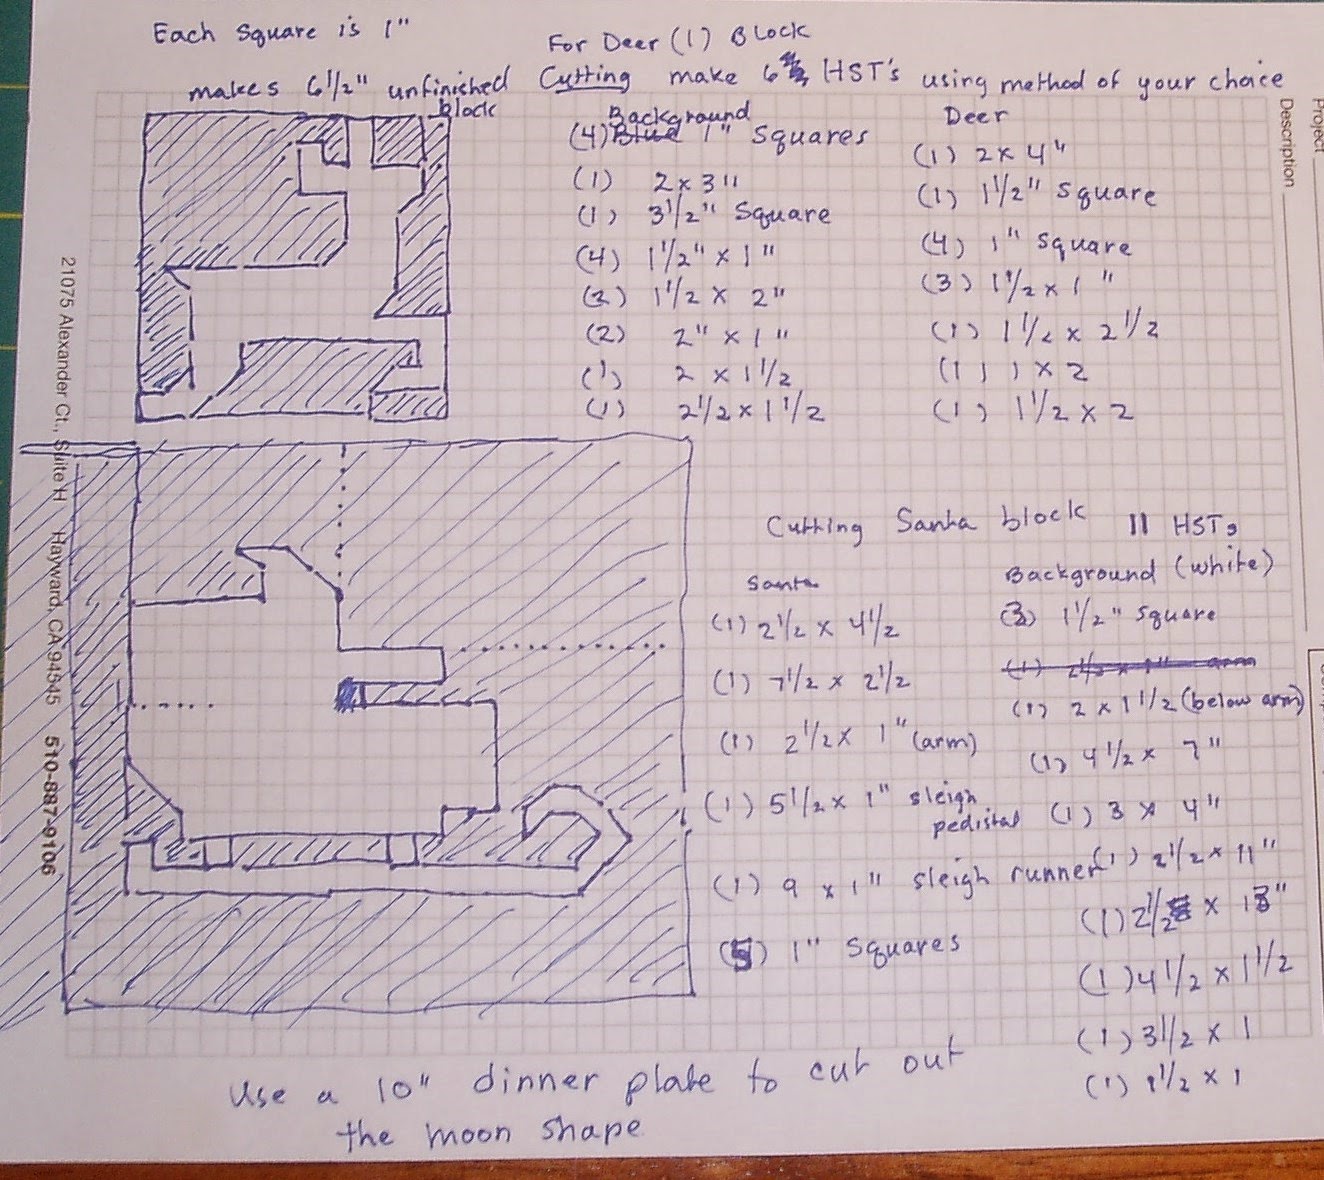 Each Square is 1"
makes 6 1/2" unfinished
block
For Deer (1) Block
Cutting make 6 HST's using method of your choice
Background
(4) Blue 1" Squares
(1) 2 x 3"
(1) 3 1/2" Square
(4) 1 1/2" x 1"
(2) 1 1/2 x 2"
(2) 2" x 1"
(1) 2 x 1 1/2
(1) 2 1/2 x 1 1/2
Deer
(1) 2 x 4"
(1) 1 1/2" Square
(4) 1" Square
(3) 1 1/2 x 1"
(1) 1 1/2 x 2 1/2
(1) 1 x 2
(1) 1 1/2 x 2
Project
Description
21075 Alexander Ct., Suite H Hayward, CA 94545 510-887-9106
Cutting Santa block 11 HSTs
Santa
(1) 2 1/2 x 4 1/2
(1) 7 1/2 x 2 1/2
(1) 2 1/2 x 1" (arm)
(1) 5 1/2 x 1" sleigh
pedistal
(1) 9 x 1" sleigh runner
(5) 1" Squares
Background (white)
(3) 1 1/2" Square
(1) 2 1/2 x 1" arm
(1) 2 x 1 1/2 (below arm)
(1) 4 1/2 x 7"
(1) 3 x 4"
(1) 2 1/2 x 11"
(1) 2 1/2 x 13"
(1) 4 1/2 x 1 1/2
(1) 3 1/2 x 1
(1) 1 1/2 x 1
Use a 10" dinner plate to cut out
the moon shape